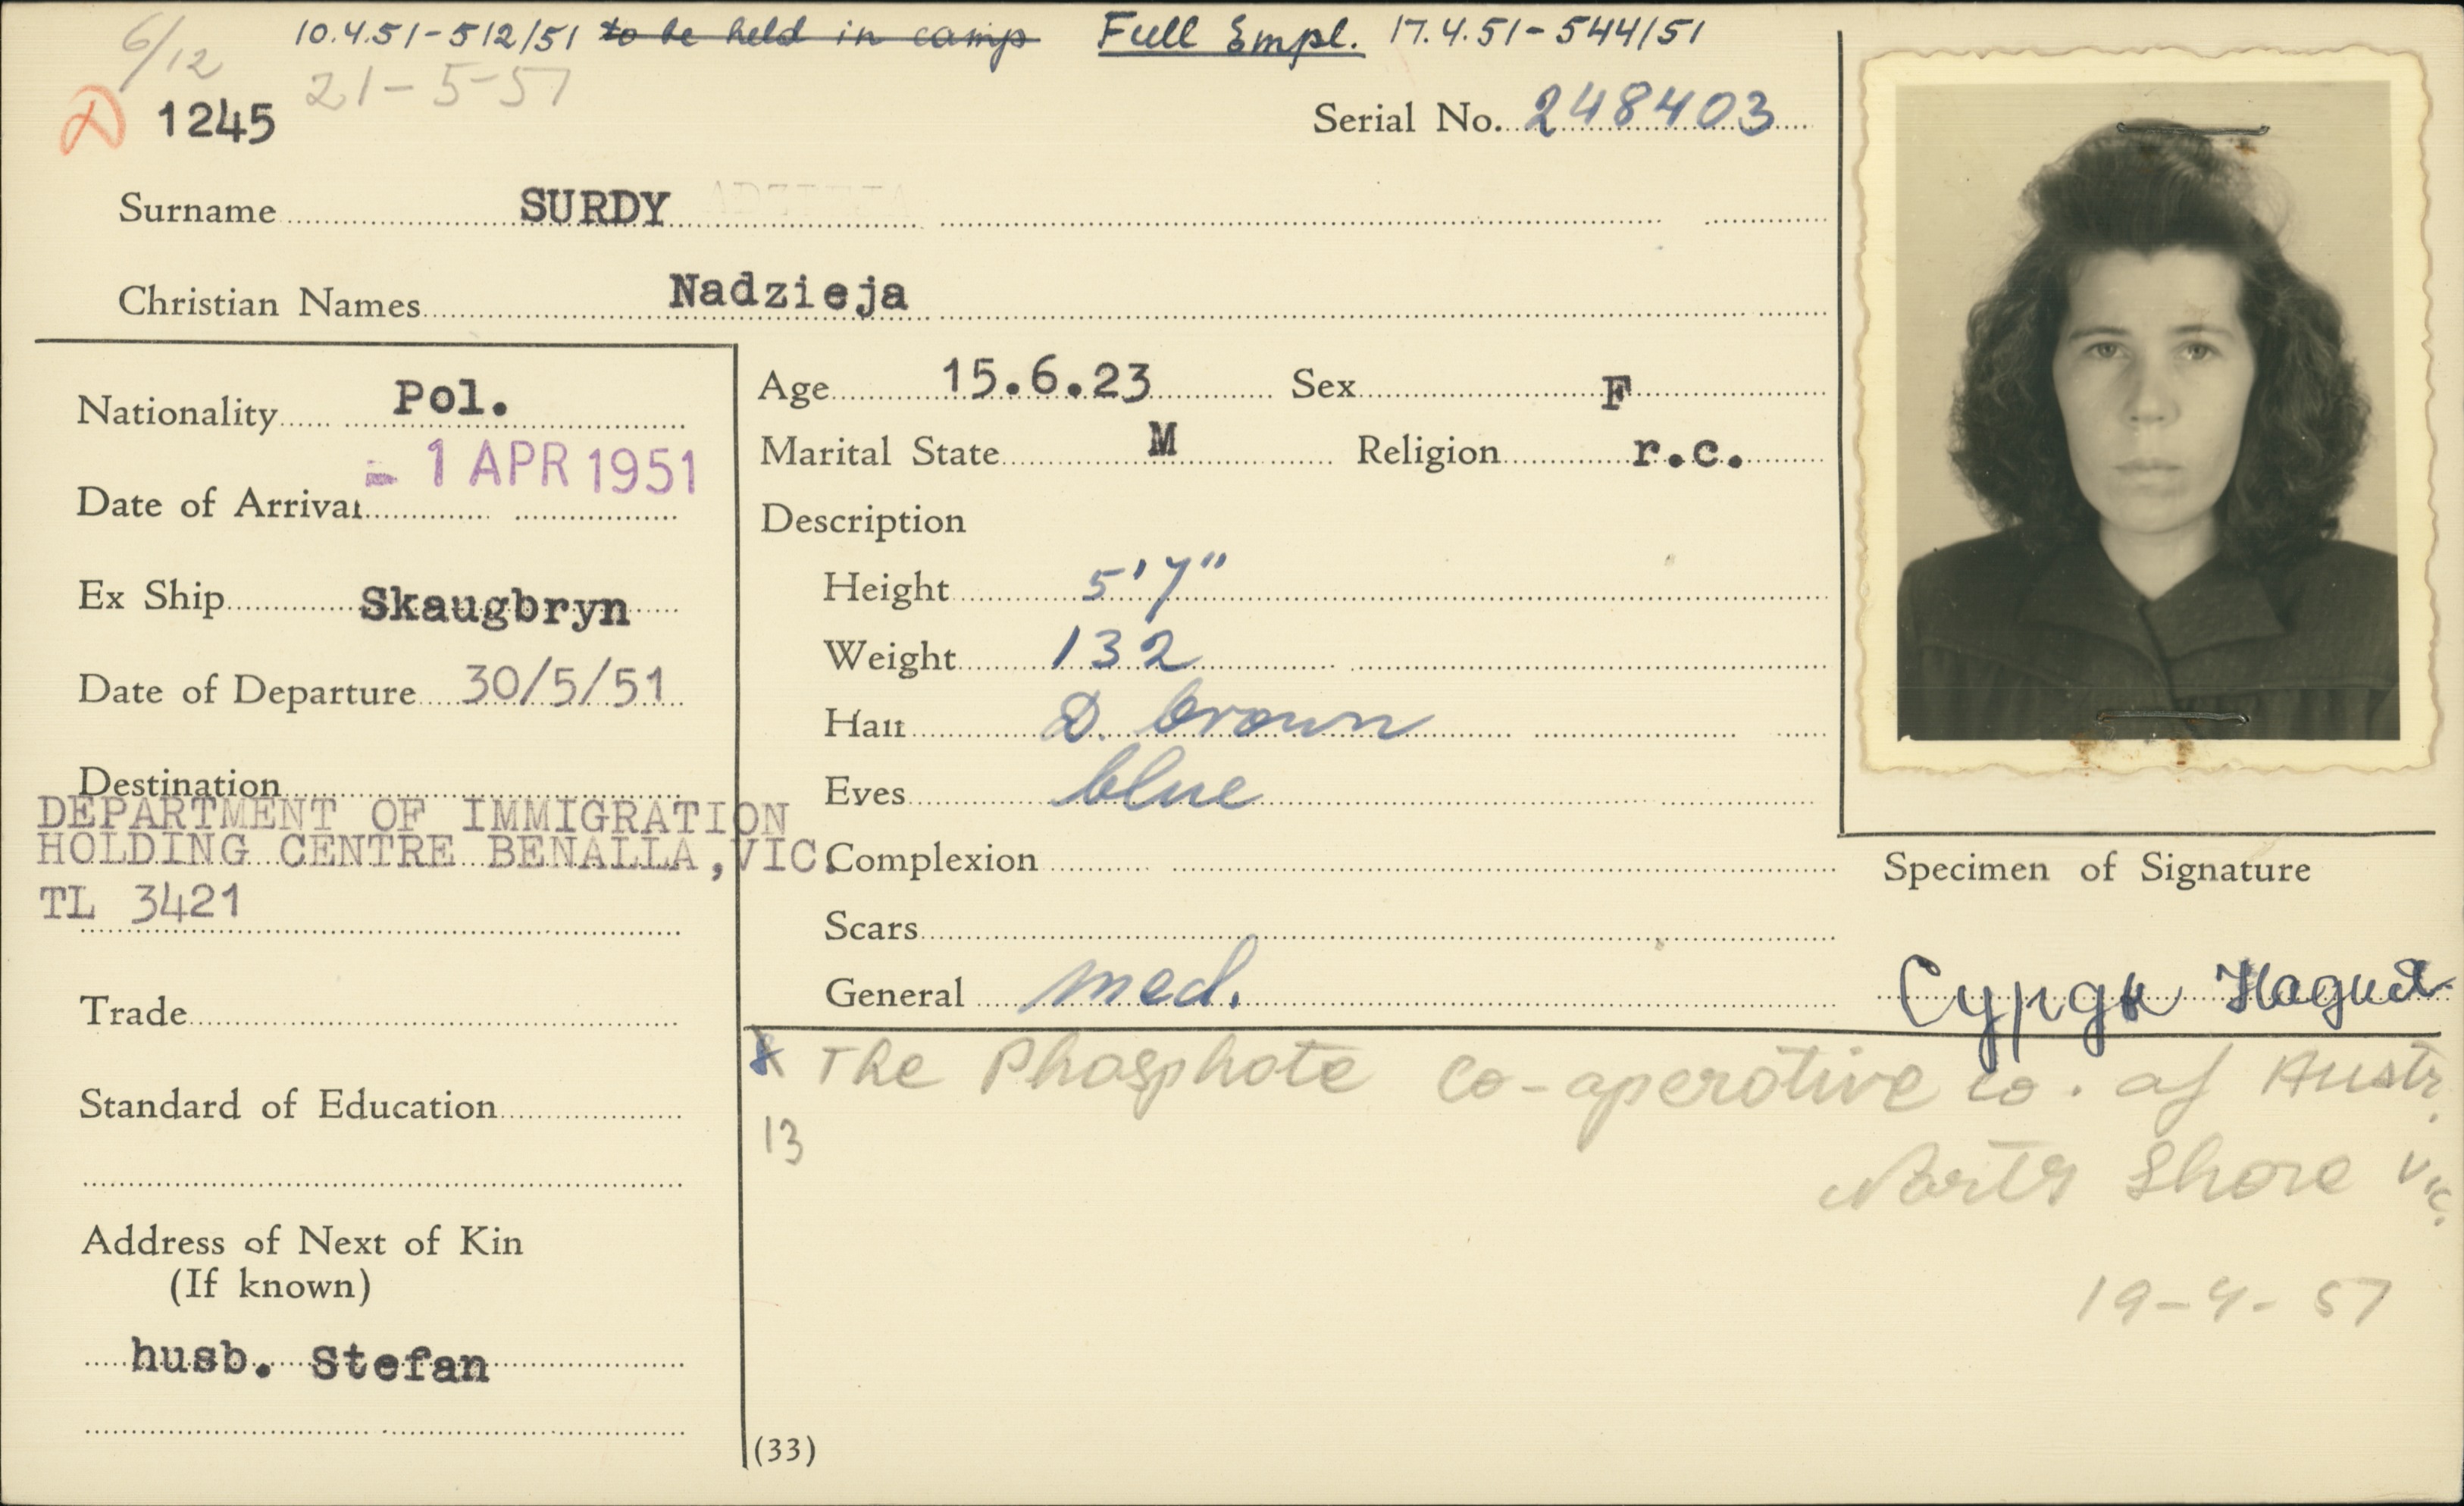 6/12
10.4.51-512/51 to be held in camp Full Empl. 17.4.51-544/51
21-5-51
D 1245
Serial No. 248403
Surname SURDY
Christian Names Nadzieja
Nationality Pol.
Date of Arrival - 1 APR 1951
Ex Ship Skaugbryn
Date of Departure 30/5/51
Destination
DEPARTMENT OF IMMIGRATION
HOLDING CENTRE BENALLA, VIC.
TL 3421
Trade
Standard of Education
Address of Next of Kin
(If known)
husb. Stefan
Age 15.6.23 Sex F
Marital State M Religion r.c.
Description
Height 5'7"
Weight 132
Hair D. brown
Eyes blue
Complexion
Scars
General med.
Specimen of Signature
Сурди Надия
The Phosphate Co-operative Co. of Austr.
13
North Shore Vic.
19-4-51
(33)